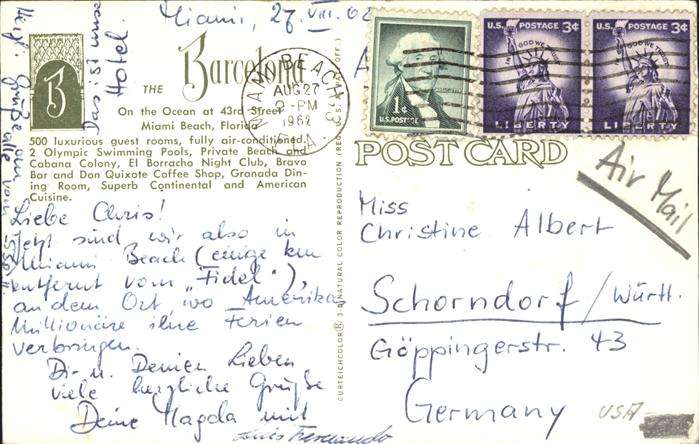 Miami, 27. VIII. 62
Das ist unser
Hotel.
B
THE Barcelona
On the Ocean at 43rd Street
Miami Beach, Florida
500 luxurious guest rooms, fully air-conditioned.
2 Olympic Swimming Pools, Private Beach and
Cabana Colony, El Borracho Night Club, Bravo
Bar and Don Quixote Coffee Shop, Granada Din-
ing Room, Superb Continental and American
Cuisine.
Liebe Chris!
Jetzt sind wir also in
Miami Beach (einige km
entfernt vom „Fidel“),
an dem Ort, wo Amerika
Millionäre ihre Ferien
verbringen.
Dir u. Deinen Lieben
viele herzliche Grüße
Deine Magda mit
Luis Fernando
CURTEICHCOLOR® 3-D NATURAL COLOR REPRODUCTION (REG. U.S. PAT. OFF.)
MIAMI BEACH
AUG 27
2-PM
1962
FLA.
1¢
U.S. POSTAGE
U.S. POSTAGE 3¢
IN GOD WE TRUST
LIBERTY
U.S. POSTAGE 3¢
IN GOD WE TRUST
LIBERTY
POST CARD
Air Mail
Miss
Christine Albert
Schorndorf/Württ.
Göppingerstr. 43
Germany
USA